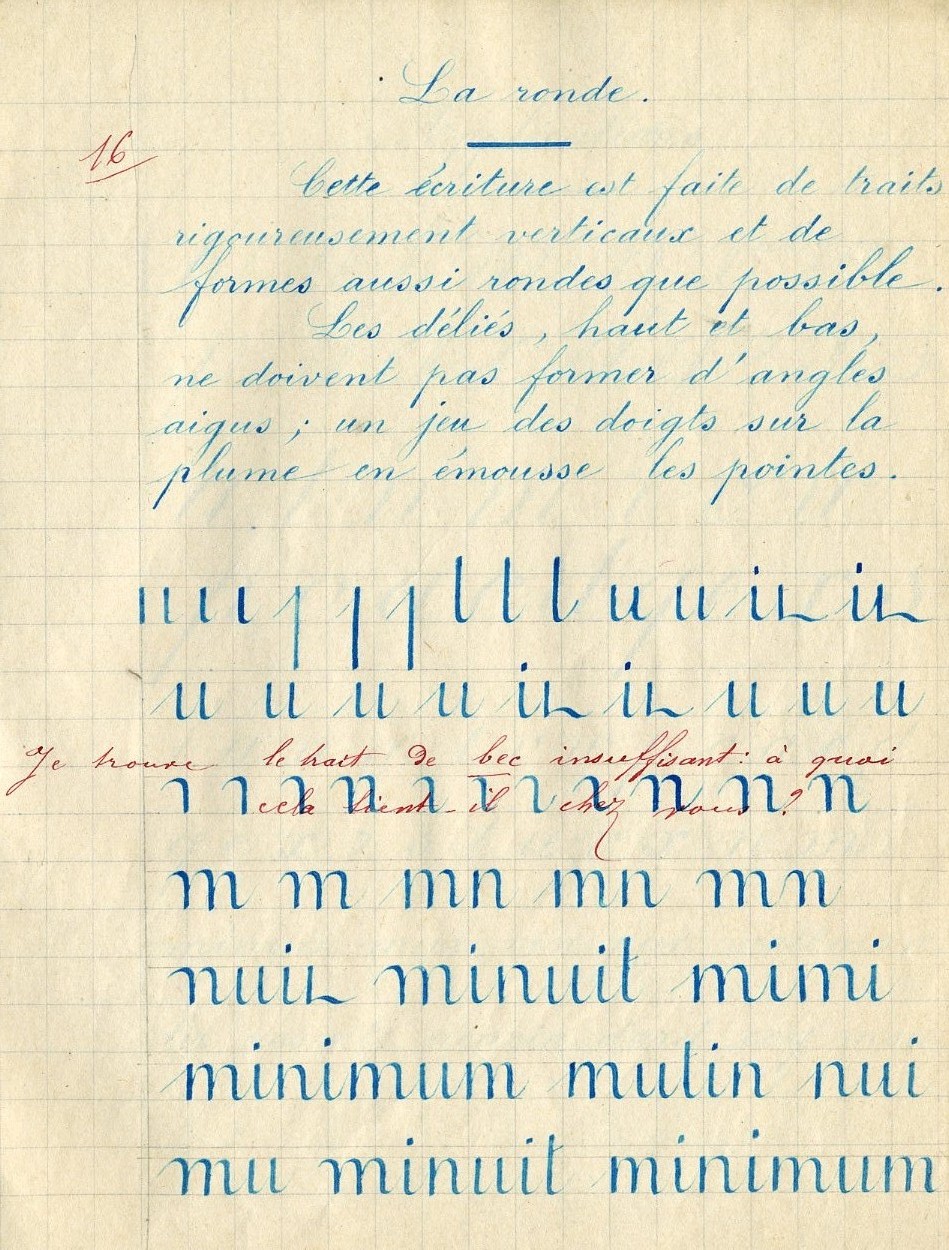 La ronde.
16
Cette écriture est faite de traits
rigoureusement verticaux et de
formes aussi rondes que possible.
Les déliés, haut et bas,
ne doivent pas former d'angles
aigus ; un jeu des doigts sur la
plume en émousse les pointes.
u u u u u u u
Je trouve le trait de bec insuffisant : à quoi
cela tient-il chez vous ?
m m mn mn mn
nuit minuit mimi
minimum mutin nui
mu minuit minimum